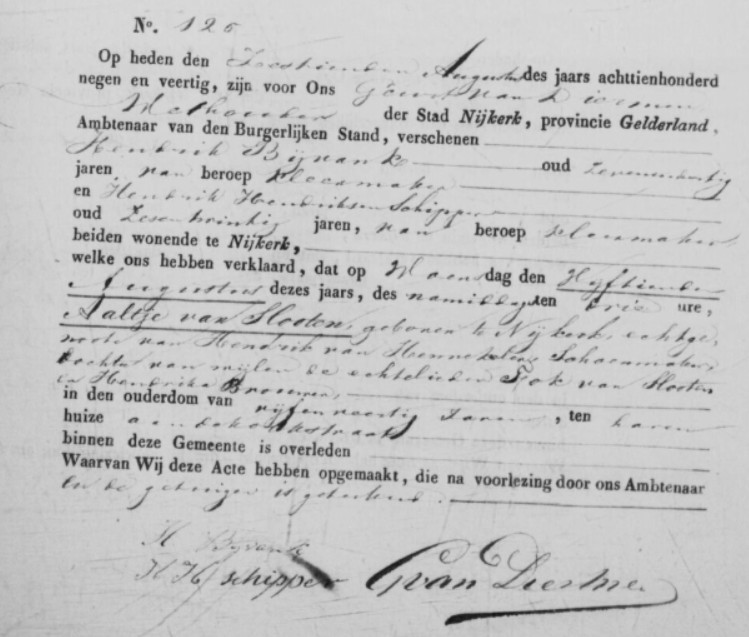 No. 126
Op heden den Zestienden Augustus des jaars achttienhonderd
negen en veertig, zijn voor Ons Gerrit van Diermen
Wethouder der Stad Nijkerk, provincie Gelderland,
Ambtenaar van den Burgerlijken Stand, verschenen
Hendrik Bijvank oud Zevenendertig
jaren van beroep kleermaker
en Hendrik Hendriksen Schipper
oud Zesentwintig jaren, van beroep kleermaker
beiden wonende te Nijkerk,
welke ons hebben verklaard, dat op Woensdag den Vijftienden
Augustus dezes jaars, des namiddags ten drie ure,
Aaltje van Slooten, geboren te Nijkerk, echtge,
noote van Hendrik van Hennekeler Schoenmaker,
dochter van wijlen de echtelieden van Slooten
en Hendrika Brouwer,
in den ouderdom van vijfenveertig Jaren, ten haren
huize aan de straat
binnen deze Gemeente is overleden
Waarvan Wij deze Acte hebben opgemaakt, die na voorlezing door ons Ambtenaar
en de getuigen is geteekend.
H Bijvank
H H schipper GvanDiermen